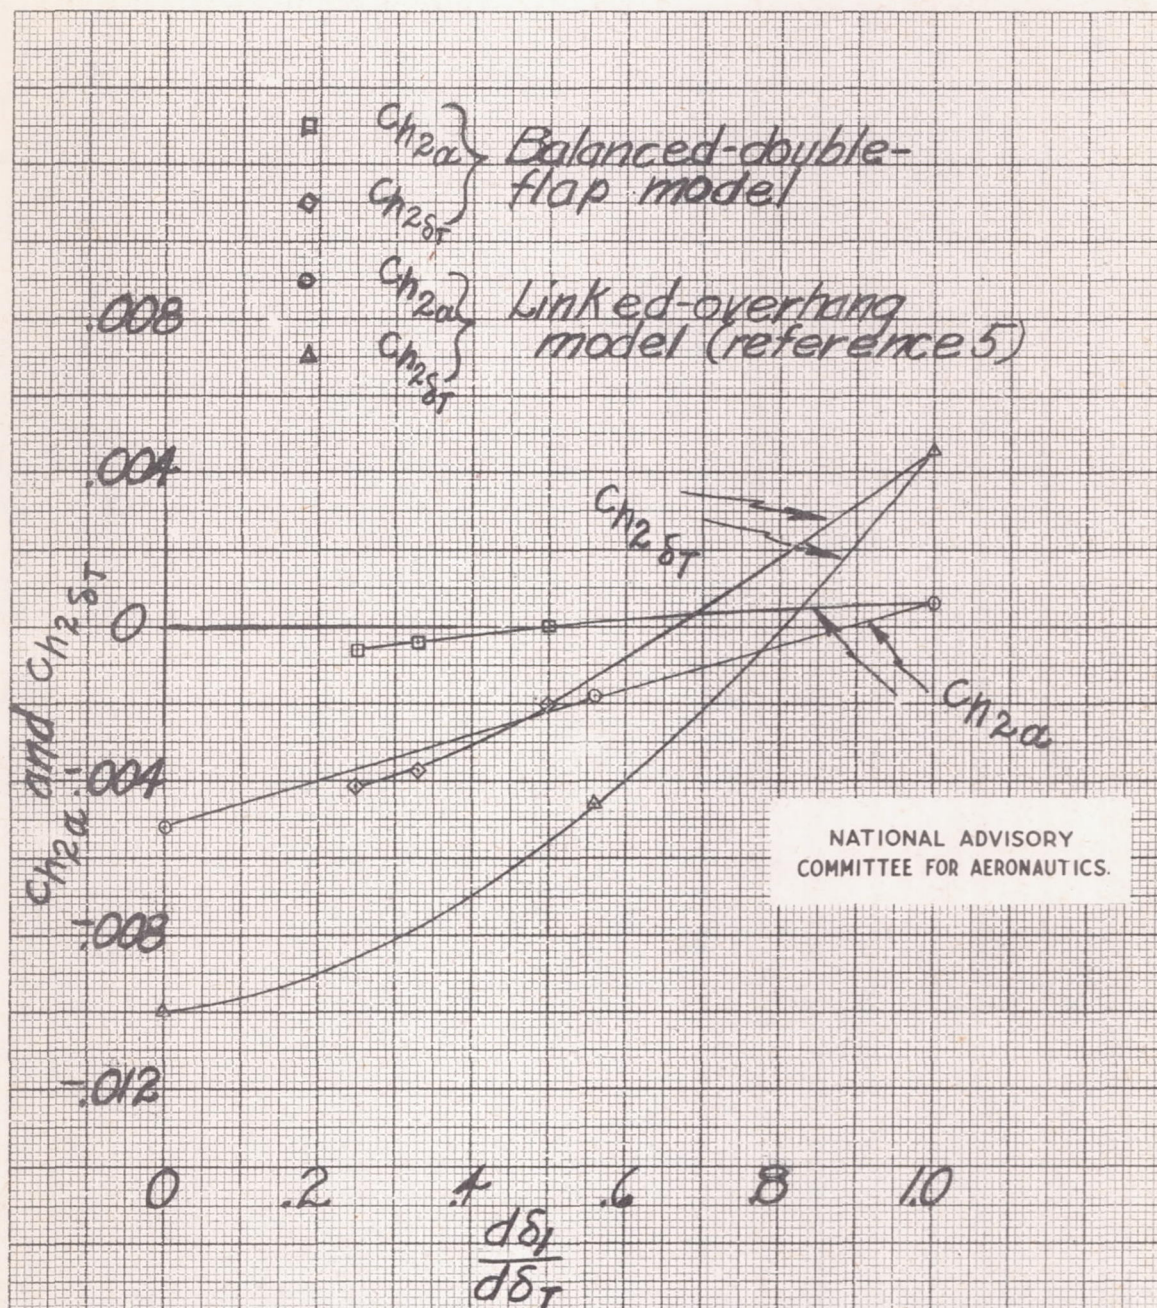 Ch2α
Ch2δT
Balanced-double-
flap model
Ch2α
Ch2δT
Linked-overhang
model (reference 5)
.008
.004
0
-.004
-.008
-.012
Ch2α and Ch2δT
Ch2δT
Ch2α
NATIONAL ADVISORY
COMMITTEE FOR AERONAUTICS.
0 .2 .4 .6 .8 1.0
dδf
dδT